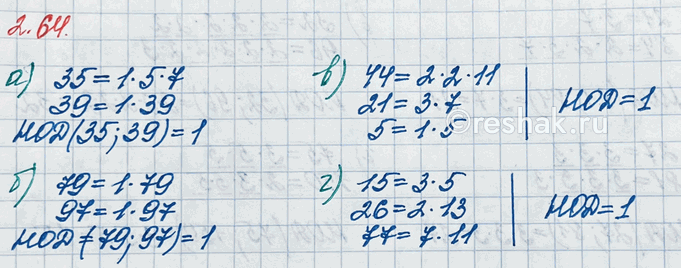 2.64.
а) 35 = 1·5·7
39 = 1·39
НОД(35; 39) = 1
б) 79 = 1·79
97 = 1·97
НОД=79; 97) = 1
в) 44 = 2·2·11
21 = 3·7
5 = 1·5
НОД = 1
г) 15 = 3·5
26 = 2·13
77 = 7·11
НОД = 1
reshak.ru